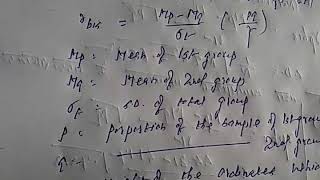 r bis = Mp - Mq / σt ( M / Y )
Mp = Mean of 1st group
Mq = Mean of 2nd group
σt = SD. of total group
p = proportion of the sample of 1st group
q = 2nd group
of the ordinates which